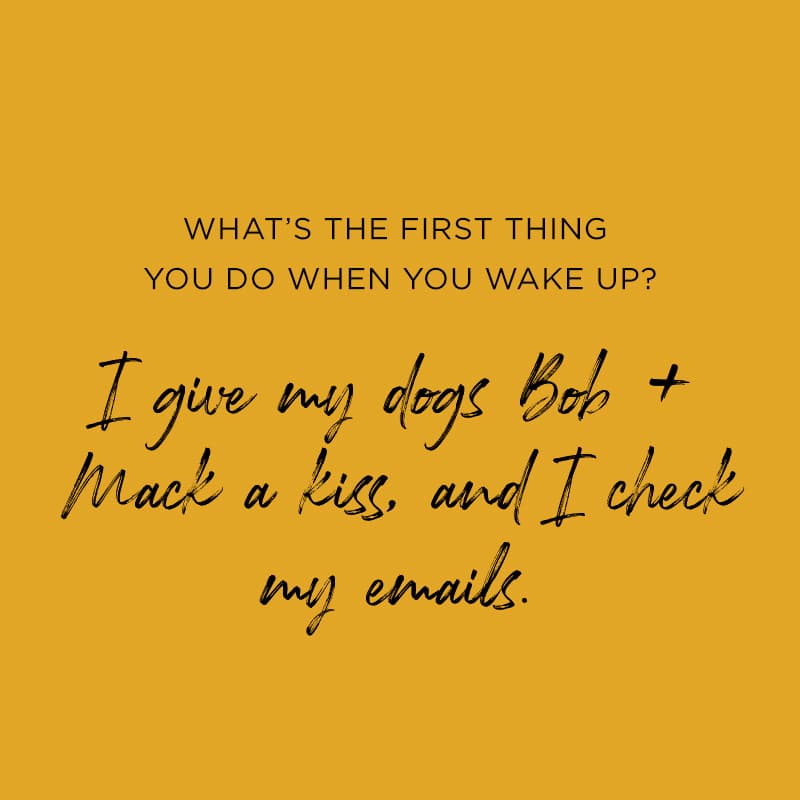 WHAT’S THE FIRST THING
YOU DO WHEN YOU WAKE UP?
I give my dogs Bob +
Mack a kiss, and I check
my emails.